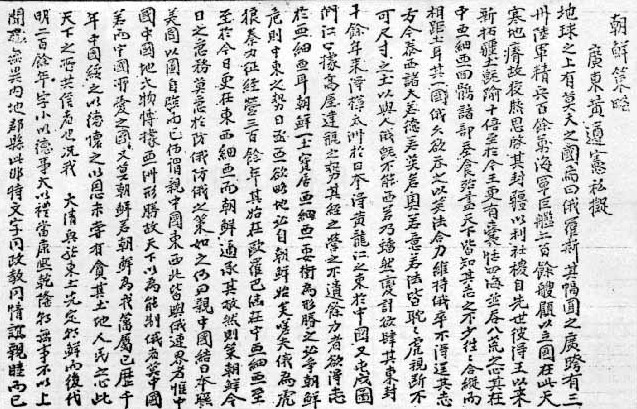 朝鮮策略
廣東黃遵憲私擬
地球之上有莫大之國焉曰俄羅斯其幅圓之廣跨有三
洲陸軍精兵百餘萬海軍巨艦二百餘艘顧以立國在北天
寒地瘠故狡焉思啟其封疆以利社稷自先世彼得王以來
新拓疆土旣踰十倍至於今王更有囊括四海並呑八荒之心其在
中亞細亞回鶻諸部蚕食殆盡天下皆知其志之不少往往合縱而
相拒土耳其一國俄久欲幷之以英法合力維持俄卒不得逞其志
方今泰西諸大若德若英若奧若意若法皆眈眈虎視斷不
可尺寸之土以與人俄旣不能西略乃幡然變計欲肆其東封
十餘年來得樺太洲於日本得黃龍江之東於中國又屯戍圖
們江口據高屋建瓴之勢其經之營之不遺餘力者欲得志
於亞細亞耳朝鮮一土實居亞細亞要衝爲形勝之必爭朝鮮
危則中東之勢日亟亞欲略地必自朝鮮始矣嗟夫俄爲虎
狼秦力征經營三百餘年其始在歐羅巴継在中亞細亞至
至於今日更在東亞細亞而朝鮮適承其敝然則策朝鮮今
日之急務莫急於防俄防俄之策如之何曰親中國結日本聯
美國以圖自强而已何謂親中國東西北皆與俄連界者惟中
國中國地大物博據亞洲形勝故天下以爲能制俄者莫中國
若而中國所愛之國又莫朝鮮若朝鮮爲我藩屬已歷千
年中國綏之以德懷之以恩未嘗有貪其土地人民之心此
天下之所共信者也况我 大清興於東土先定朝鮮而後伐
明二百餘年字小以德事大以禮當康熙乾隆朝無事不以上
聞無異內地郡縣此非特文字同政教同情誼親睦而已